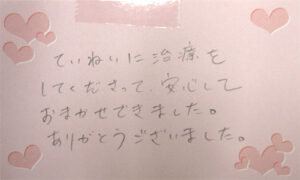 ていねいに治療を
してくださって、安心して
おまかせできました。
ありがとうございました。